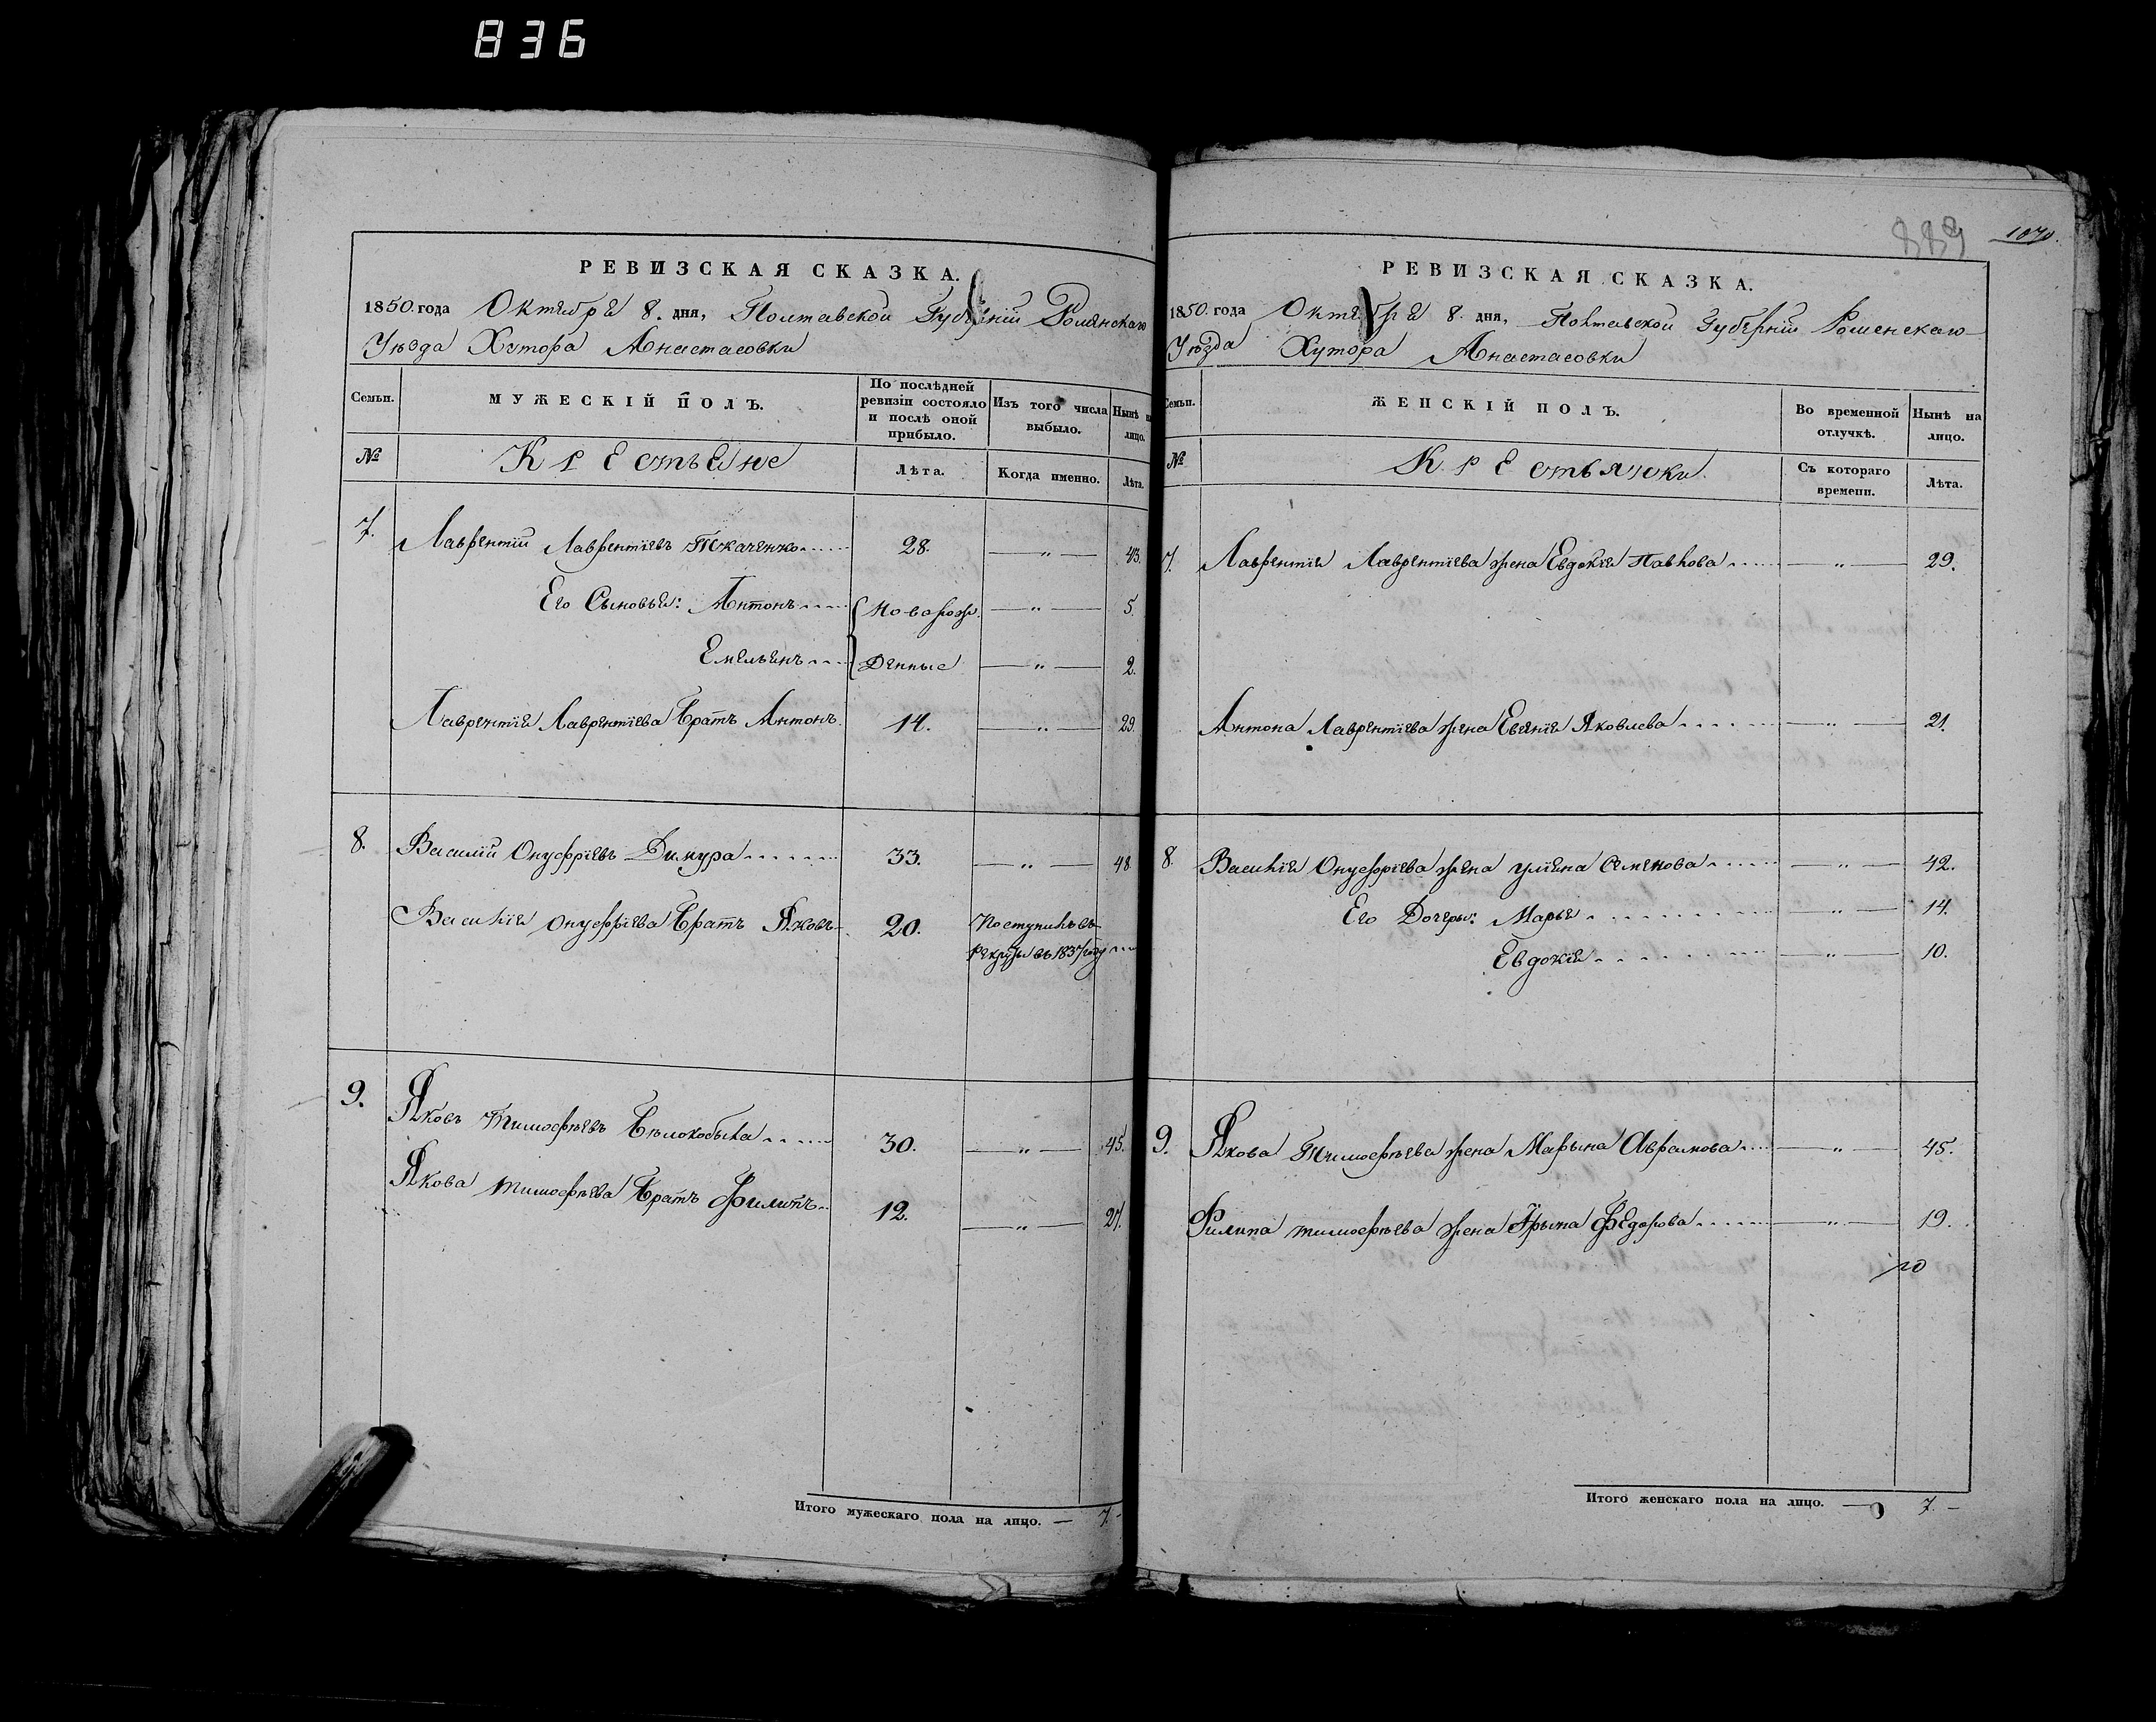 836
РЕВИЗСКАЯ СКАЗКА.
1850. года Октября 8. дня, Полтавской Губерніи Роменскаго
Уѣзда Хутора Анастасовки
Семьи.
МУЖЕСКІЙ ПОЛЪ.
По послѣдней ревизіи состояло и послѣ оной прибыло.
Изъ того числа выбыло.
Нынѣ на лицо.
№
Крестьяне
Лѣта.
Когда именно.
Лѣта.
7. Лаврентій Лаврентіевъ Ткаченко 28. — " — 43.
Его Сыновья: Антонъ { Новорож. — " — 5.
Емельянъ { денные — " — 2.
Лаврентія Лаврентіева братъ Антонъ. 14. — " — 29.
8. Василій Онуфріевъ 33. — " — 48.
Василія Онуфріева братъ Яковъ 20. Поступилъ въ
рекруты въ 1837 году
9. Яковъ Тимофѣевъ Бѣлокобыла 30. — " — 45.
Якова Тимофѣева братъ Филипъ 12. — " — 27.
Итого мужескаго пола на лицо. — 7. —
889
1070.
РЕВИЗСКАЯ СКАЗКА.
1850. года Октября 8. дня, Полтавской Губерніи Роменскаго
Уѣзда Хутора Анастасовки
Семьи.
ЖЕНСКІЙ ПОЛЪ.
Во временной отлучкѣ.
Нынѣ на лицо.
№
Крестьянки.
Съ котораго времени.
Лѣта.
7. Лаврентія Лаврентіева жена Евдокія Павлова — " — 29.
Антона Лаврентіева жена Яковлева — " — 21.
8. Василія Онуфріева жена Уліяна Семенова — " — 42.
Его Дочери: Марья — " — 14.
Евдокія — " — 10.
9. Якова Тимофѣева жена Марьяна Аврамова — " — 45.
Филипа Тимофѣева жена Федорова — " — 19.
Итого женскаго пола на лицо. — 7. —